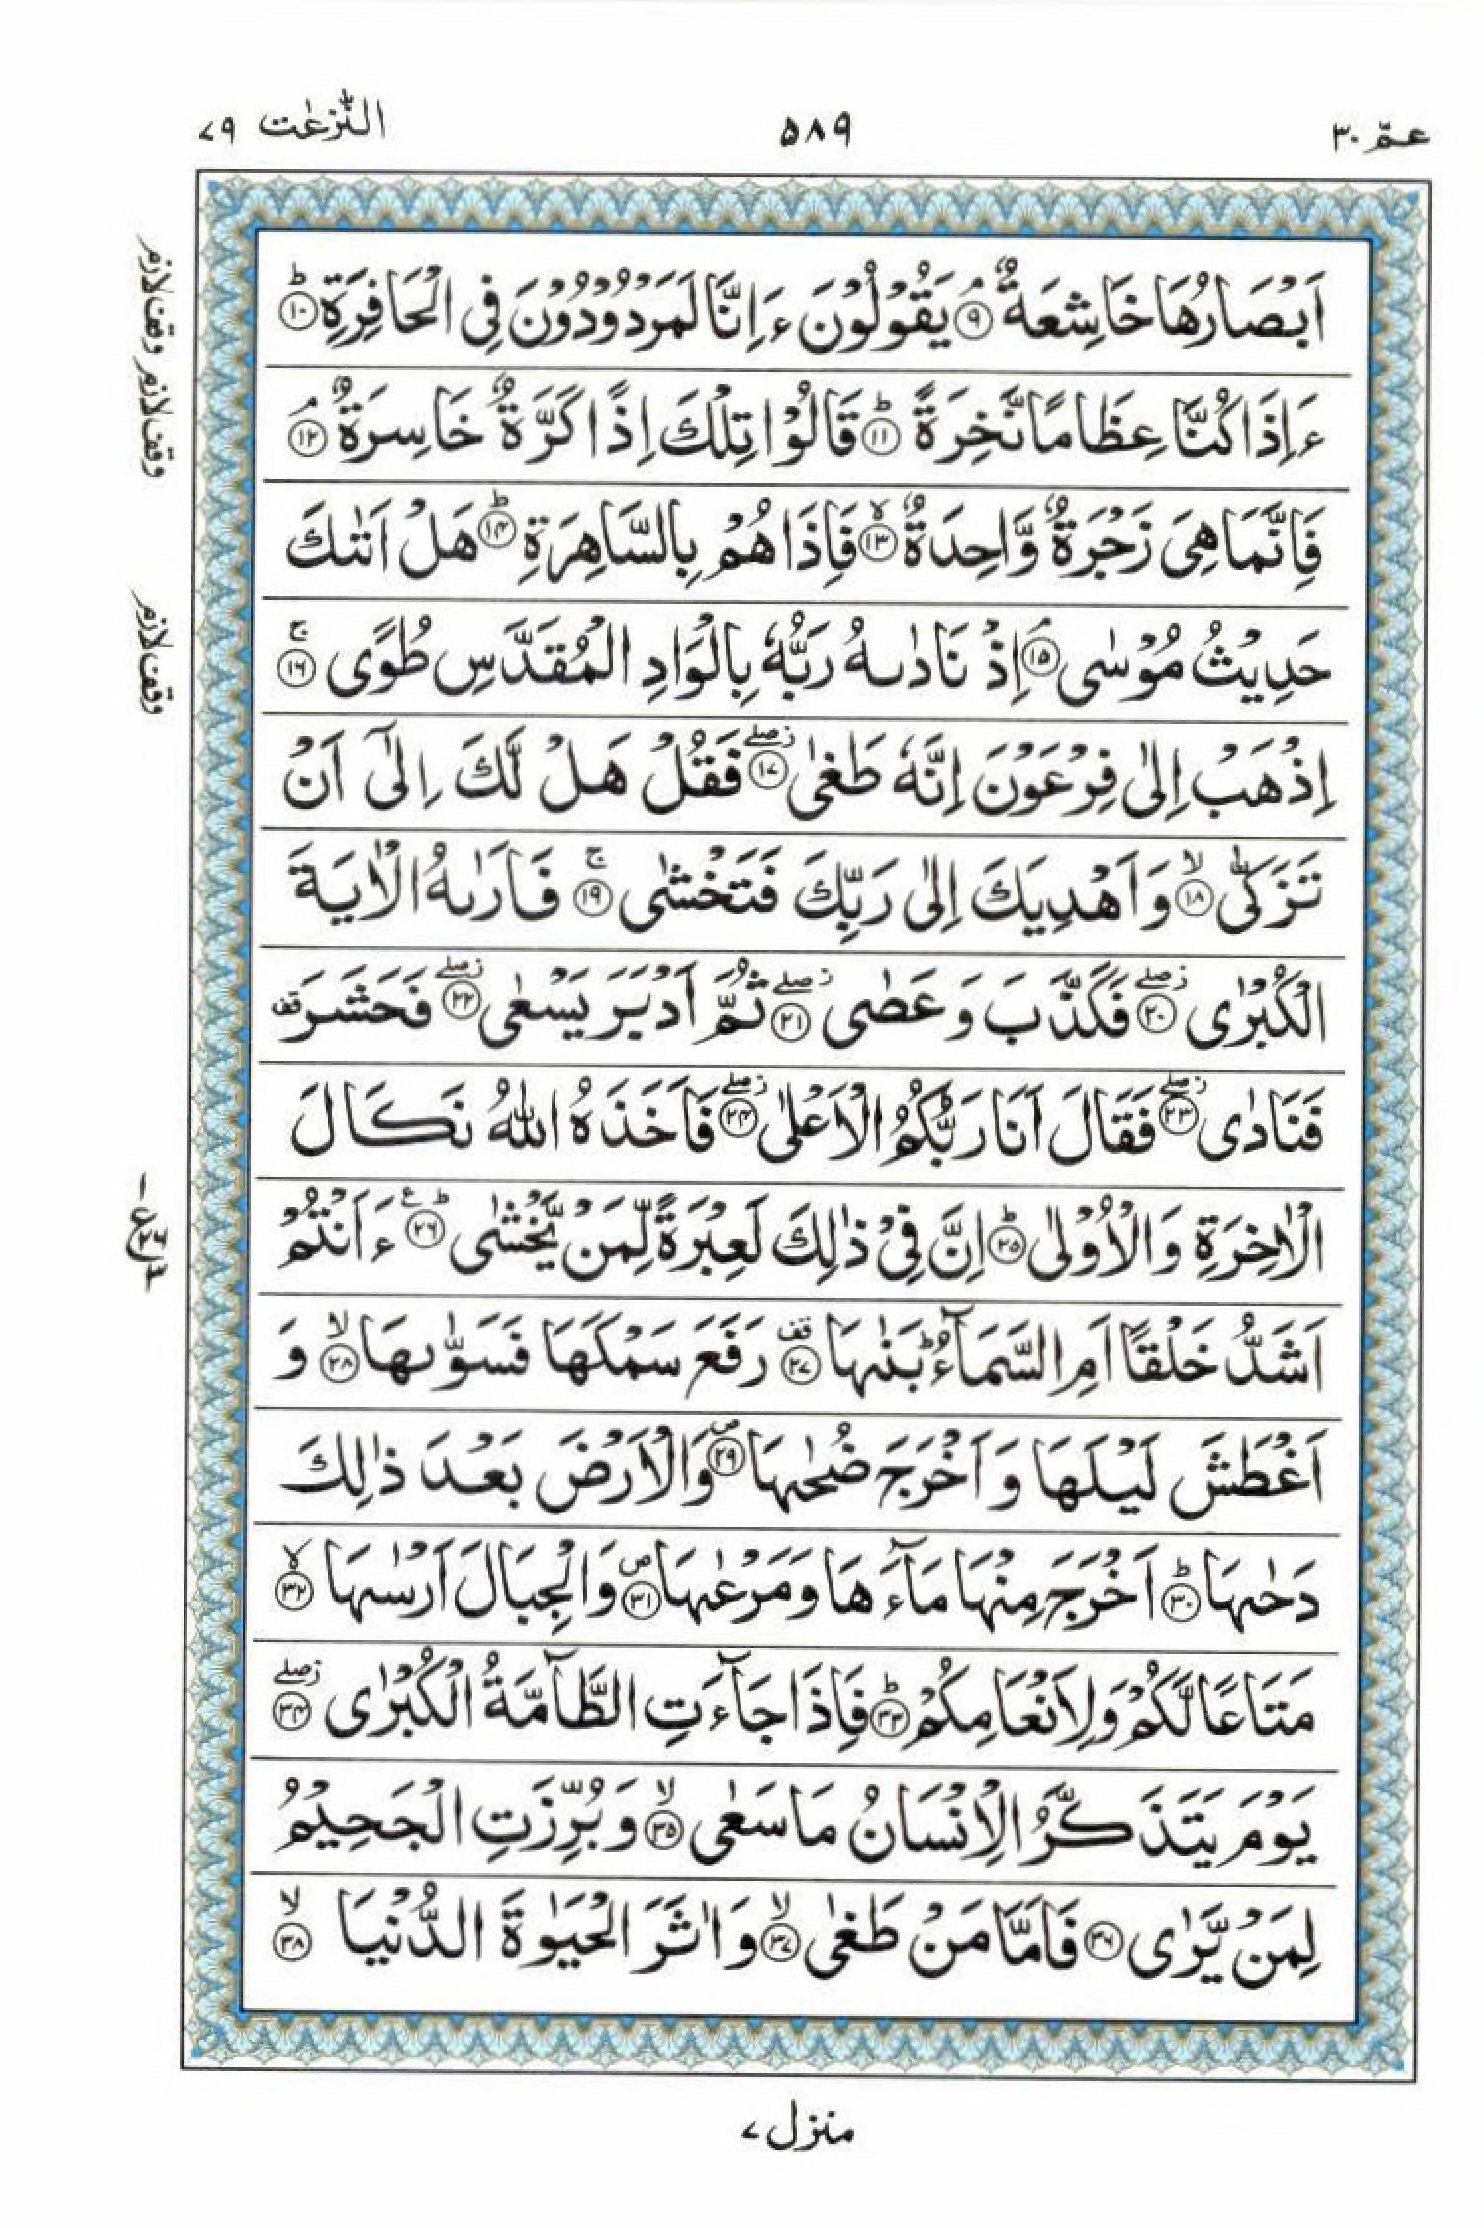 عمّ ٣٠
٥٨٩
النّٰزعٰت ٧٩
اَبْصَارُهَا خَاشِعَةٌ ۘ‏﴿۹﴾ يَقُوْلُوْنَ ءَاِنَّا لَمَرْدُوْدُوْنَ فِى الْحَافِرَةِ ؕ‏﴿۱۰﴾
ءَاِذَا كُنَّا عِظَامًا نَّخِرَةً ؕ‏﴿۱۱﴾ قَالُوْا تِلْكَ اِذًا كَرَّةٌ خَاسِرَةٌ ۘ‏﴿۱۲﴾
فَاِنَّمَا هِىَ زَجْرَةٌ وَّاحِدَةٌ ۙ‏﴿۱۳﴾ فَاِذَا هُمْ بِالسَّاهِرَةِ ؕ‏﴿۱۴﴾ هَلْ اَتٰٮكَ
حَدِيْثُ مُوْسٰى ۘ‏﴿۱۵﴾ اِذْ نَادٰٮهُ رَبُّهٗ بِالْوَادِ الْمُقَدَّسِ طُوًى ۚ‏﴿۱۶﴾
اِذْهَبْ اِلٰى فِرْعَوْنَ اِنَّهٗ طَغٰى ۖ‏﴿۱۷﴾ فَقُلْ هَلْ لَّكَ اِلٰٓى اَنْ
تَزَكّٰى ۙ‏﴿۱۸﴾ وَاَهْدِيَكَ اِلٰى رَبِّكَ فَتَخْشٰى ۚ‏﴿۱۹﴾ فَاَرٰٮهُ الْاٰيَةَ
الْكُبْرٰى ۖ‏﴿۲۰﴾ فَكَذَّبَ وَعَصٰى ۖ‏﴿۲۱﴾ ثُمَّ اَدْبَرَ يَسْعٰى ۖ‏﴿۲۲﴾ فَحَشَرَ قف
فَنَادٰى ۖ‏﴿۲۳﴾ فَقَالَ اَنَا رَبُّكُمُ الْاَعْلٰى ۖ‏﴿۲۴﴾ فَاَخَذَهُ اللّٰهُ نَكَالَ
الْاٰخِرَةِ وَالْاُوْلٰى ؕ‏﴿۲۵﴾ اِنَّ فِىْ ذٰلِكَ لَعِبْرَةً لِّمَنْ يَّخْشٰى ؕ ع‏﴿۲۶﴾ ءَاَنْتُمْ
اَشَدُّ خَلْقًا اَمِ السَّمَآءُ ؕ بَنٰٮهَا قف‏﴿۲۷﴾ رَفَعَ سَمْكَهَا فَسَوّٰٮهَا ۙ‏﴿۲۸﴾ وَ
اَغْطَشَ لَيْلَهَا وَاَخْرَجَ ضُحٰٮهَا ص‏﴿۲۹﴾ وَالْاَرْضَ بَعْدَ ذٰلِكَ
دَحٰٮهَا ؕ‏﴿۳۰﴾ اَخْرَجَ مِنْهَا مَآءَهَا وَمَرْعٰٮهَا ص‏﴿۳۱﴾ وَالْجِبَالَ اَرْسٰٮهَا ۙ‏﴿۳۲﴾
مَتَاعًا لَّكُمْ وَلِاَنْعَامِكُمْ ؕ‏﴿۳۳﴾ فَاِذَا جَآءَتِ الطَّآمَّةُ الْكُبْرٰى ۖ‏﴿۳۴﴾
يَوْمَ يَتَذَكَّرُ الْاِنْسَانُ مَا سَعٰى ۙ‏﴿۳۵﴾ وَبُرِّزَتِ الْجَحِيْمُ
لِمَنْ يَّرٰى‏﴿۳۶﴾ فَاَمَّا مَنْ طَغٰى ۙ‏﴿۳۷﴾ وَاٰثَرَ الْحَيٰوةَ الدُّنْيَا ۙ‏﴿۳۸﴾
وقف لازم وقف لازم
وقف لازم
١ ع ٢٦ ٣
منزل ٧